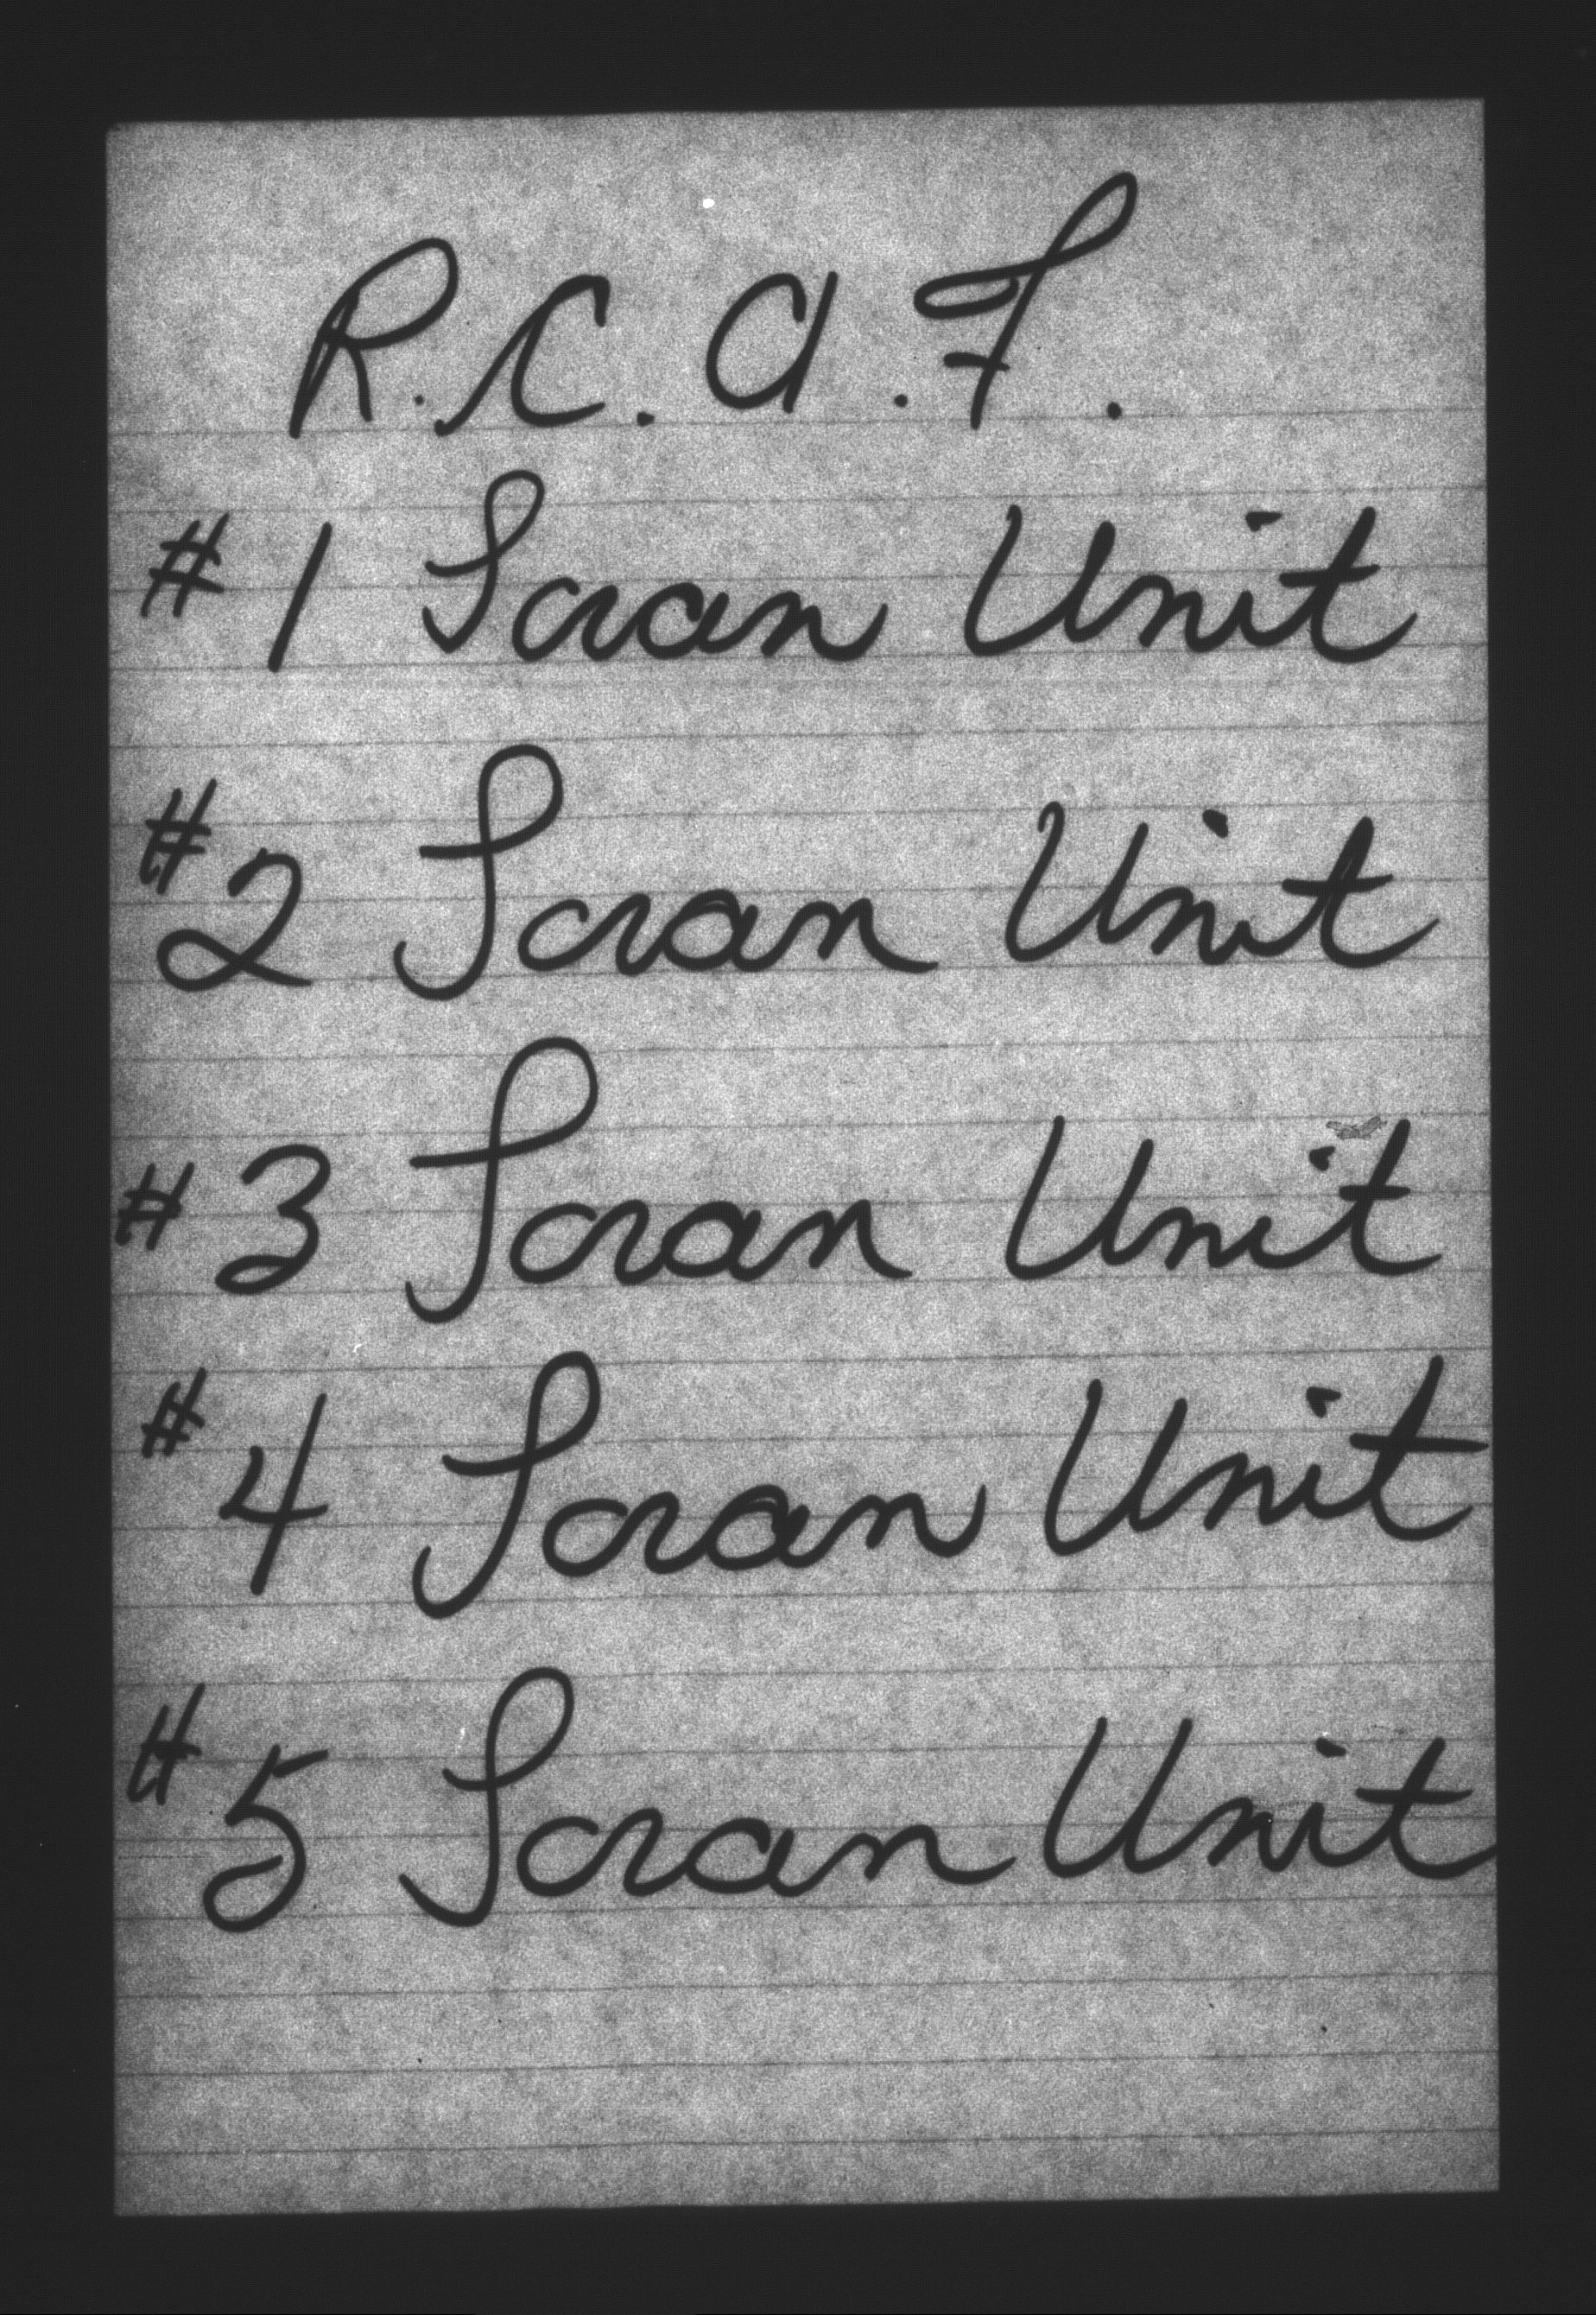 R.C.A.F.
#1 Loran Unit
#2 Loran Unit
#3 Loran Unit
#4 Loran Unit
#5 Loran Unit